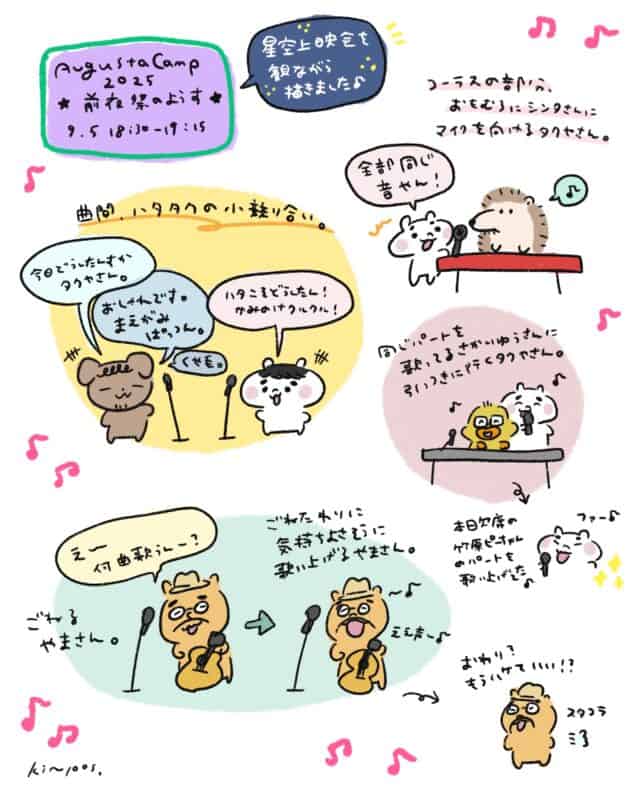 Augusta Camp
2025
★前夜祭のようす★
9.5 18:30-19:15
星空上映会を
観ながら
描きました♪
コーラスの部分、
おもむろにシンタさんに
マイクを向けるタクヤさん。
全部同じ
音やん!
♪
曲間、ハタタクの小競り合い。
今日どうしたんすか
タクヤさん。
おしゃれです。
まえがみ
ぱっつん。
くやむ。
ハタこそどうしたん!
かみのけクルクル!
同じパートを
歌ってるさかいゆうさんに
引いつきに行くタクヤさん。
本日欠席の
竹原ピーちゃん
のパートを
歌い上げてた♪
ファー♪
えー
何曲歌うんー?
ごねる
やまさん。
ごねたわりに
気持ちよさそうに
歌い上げるやまさん。
〜♪
おわり?
もうハケていい!?
スタコラ
ki~yoos.